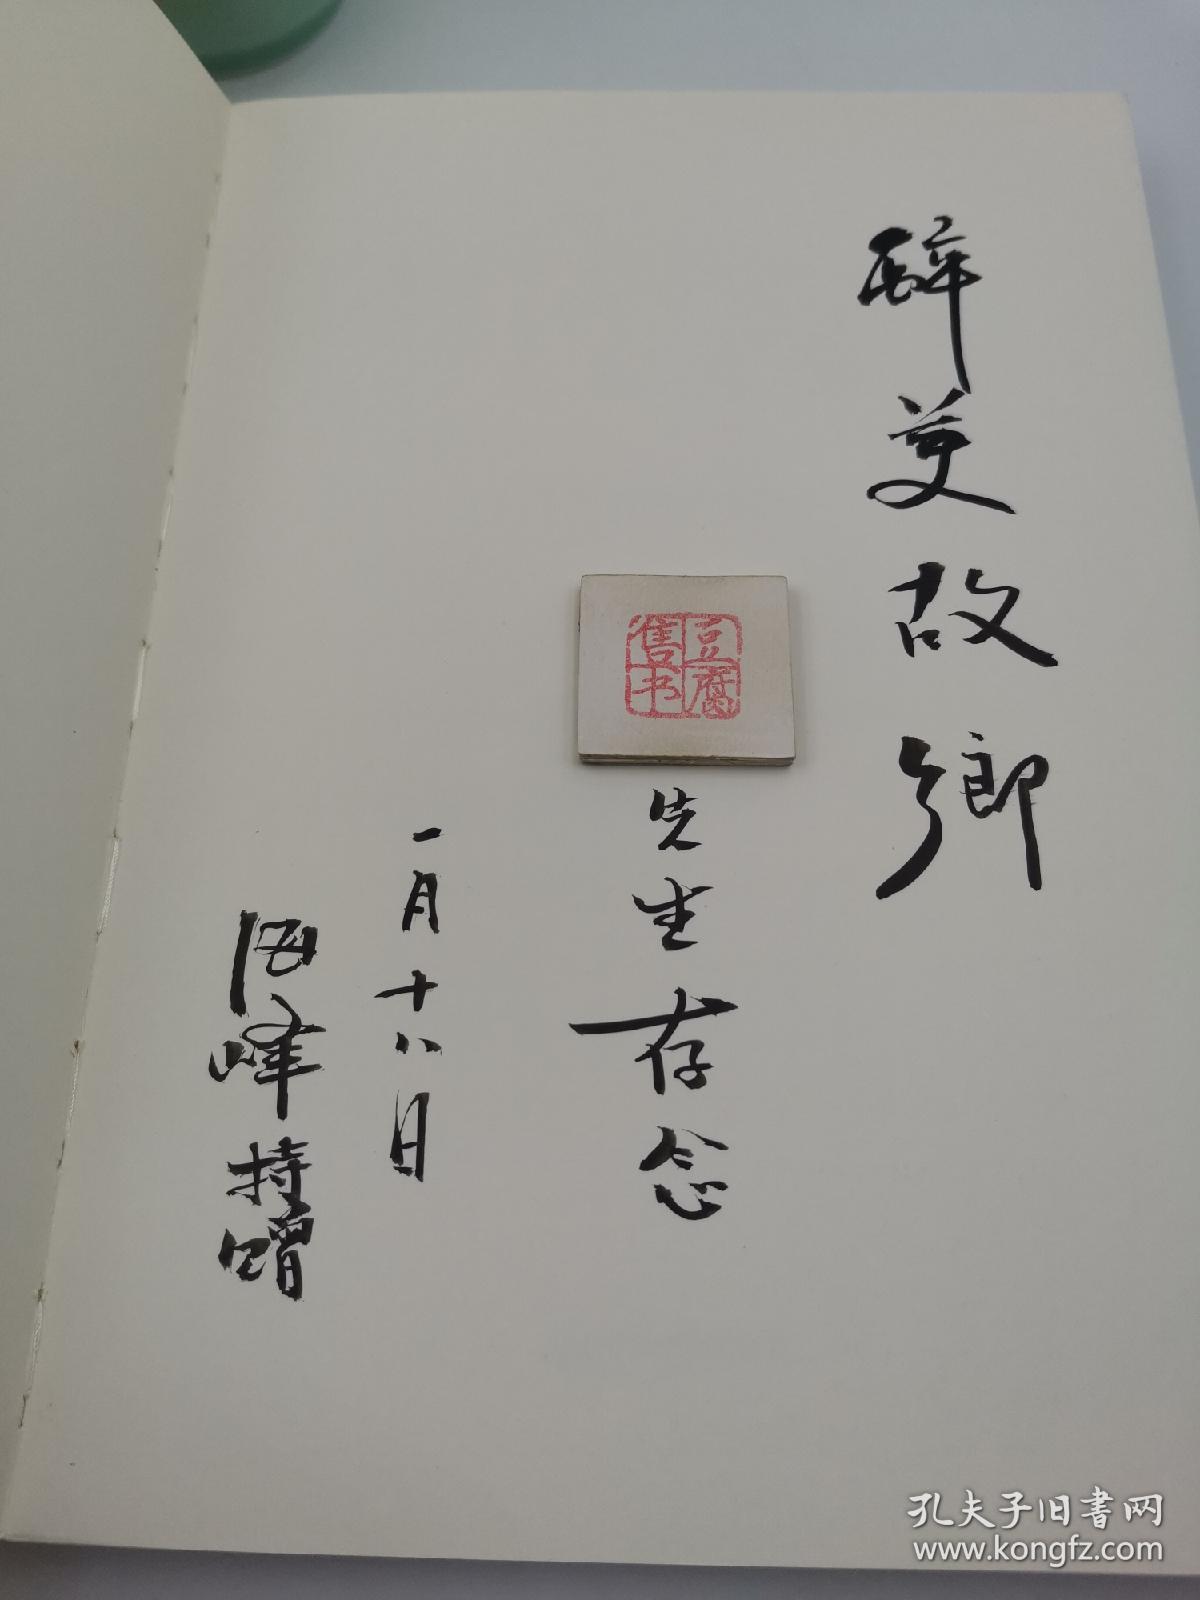 醉美故鄉
豆腐
售书
先生存念
一月十八日
海峰持赠
孔夫子旧书网
www.kongfz.com